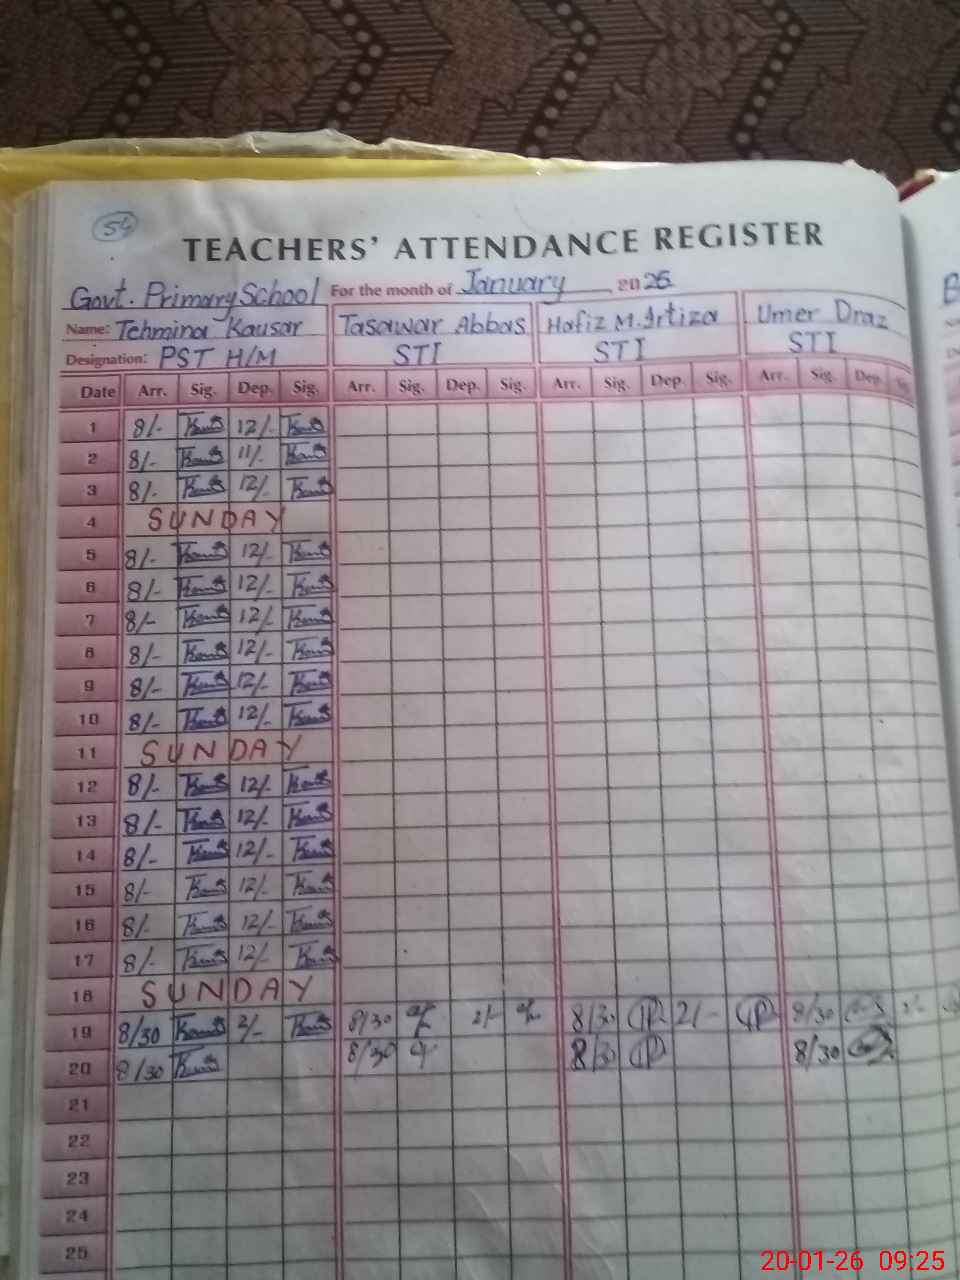 54
TEACHERS' ATTENDANCE REGISTER
Govt. Primary School For the month of January 2026
Name: Tehmina Kausar Tasawar Abbas Hafiz M. Irtiza Umer Draz
Designation: PST H/M STI STI STI
Date Arr. Sig. Dep. Sig. Arr. Sig. Dep. Sig. Arr. Sig. Dep. Sig. Arr. Sig. Dep. Sig.
1 8/- 12/-
2 8/- 11/-
3 8/- 12/-
4 SUNDAY
5 8/- 12/-
6 8/- 12/-
7 8/- 12/-
8 8/- 12/-
9 8/- 12/-
10 8/- 12/-
11 SUNDAY
12 8/- 12/-
13 8/- 12/-
14 8/- 12/-
15 8/- 12/-
16 8/- 12/-
17 8/- 12/-
18 SUNDAY
19 8/30 2/- 8/30 2/- 8/30 2/- 8/30 2/-
20 8/30 8/30 8/30 8/30
21
22
23
24
25
20-01-26 09:25